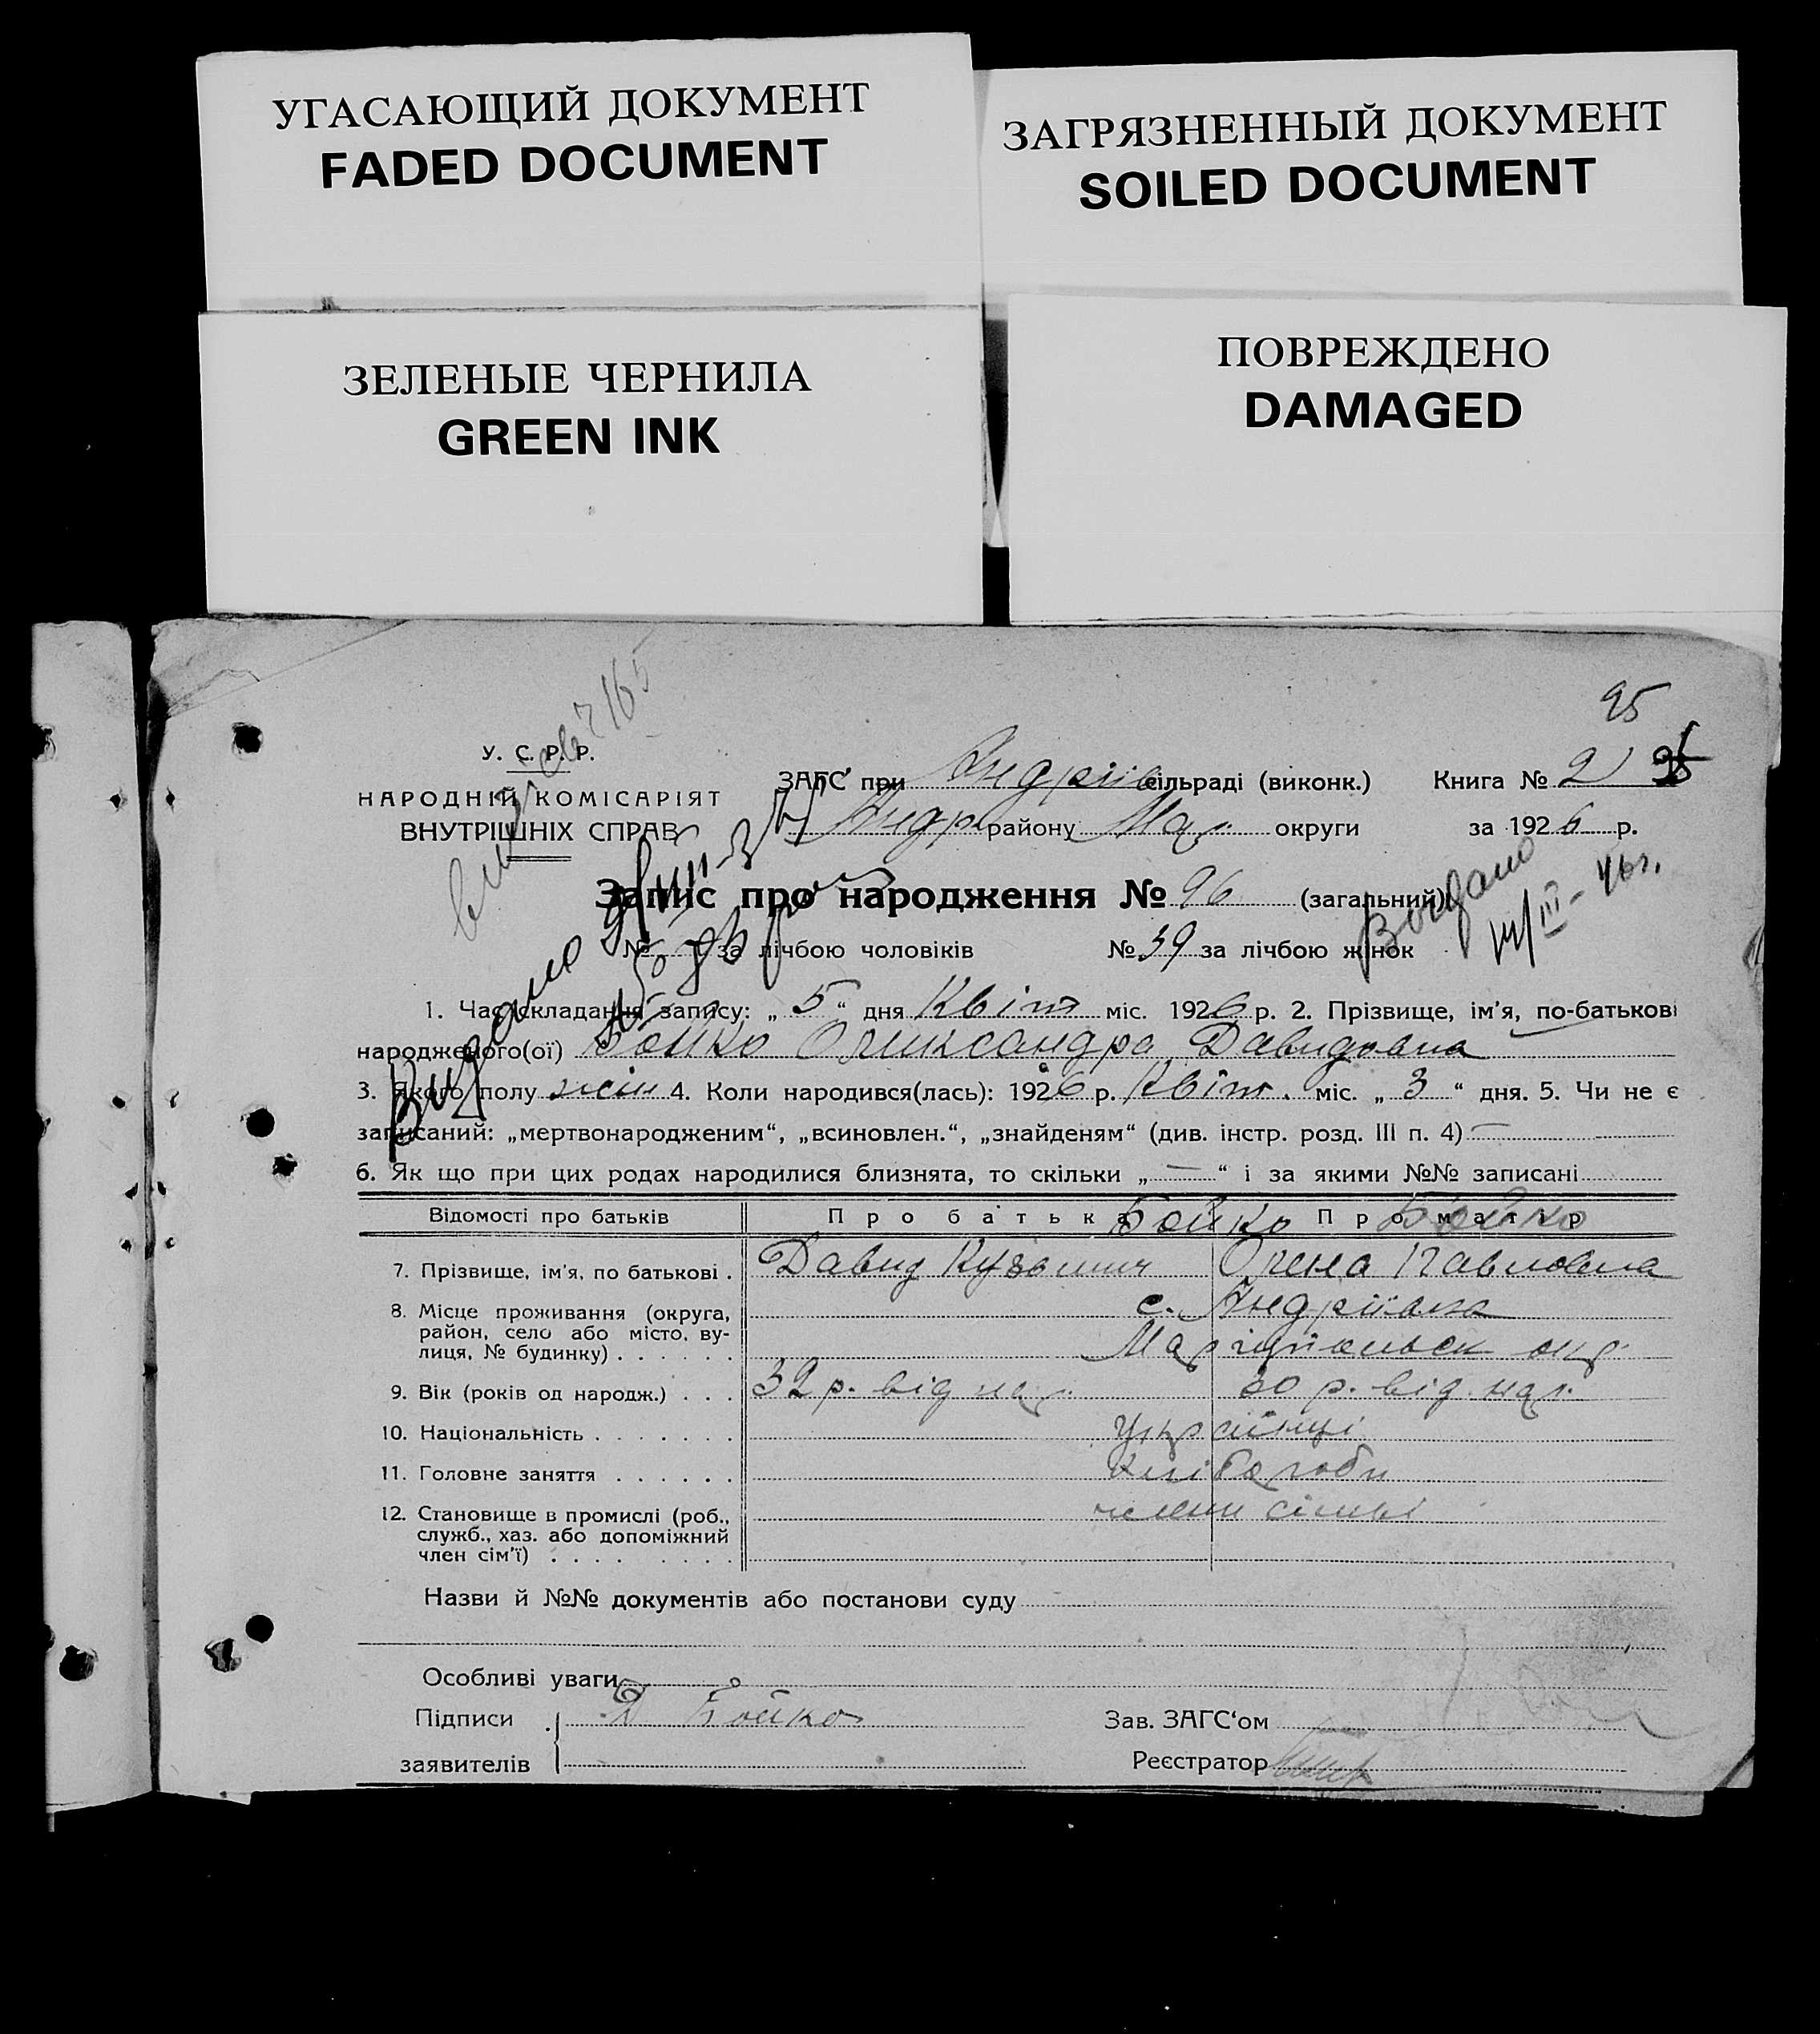 УГАСАЮЩИЙ ДОКУМЕНТ
FADED DOCUMENT
ЗАГРЯЗНЕННЫЙ ДОКУМЕНТ
SOILED DOCUMENT
ЗЕЛЕНЫЕ ЧЕРНИЛА
GREEN INK
ПОВРЕЖДЕНО
DAMAGED
95
У. С. Р. Р.
НАРОДНІЙ КОМІСАРІЯТ
ВНУТРІШНІХ СПРАВ
ЗАГС при Андріїв сільраді (виконк.) Книга № 2
Андр. району Мар. округи за 1926 р.
Запис про народження № 96 (загальний)
№ за лічбою чоловіків № 39 за лічбою жінок
Видано
14/III - 46 г.
1. Час складання запису: „ 5 “ дня Квіт міс. 1926 р. 2. Прізвище, ім'я, по-батькові
народженого(ої) Бойко Олександра Давидовна
3. Якого полу жін 4. Коли народився(лась): 1926 р. Квіт. міс. „ 3 “ дня. 5. Чи не є
записаний: „мертвонародженим“, „всиновлен.“, „знайденям“ (див. інстр. розд. III п. 4) —
6. Як що при цих родах народилися близнята, то скільки „ — “ і за якими №№ записані
Відомості про батьків Про батька Про матір
Бойко Бойко
7. Прізвище, ім'я, по батькові . Давид Кузьмич Олена Павловна
8. Місце проживання (округа, с. Андріївка
район, село або місто, ву-
лиця, № будинку) . . . . . . Маріюпольск окр.
9. Вік (років од народж.) . . . 32 р. від нар. 30 р. від нар.
10. Національність . . . . . . . Українці
11. Головне заняття . . . . . . Хліброби
12. Становище в промислі (роб., члени сімьї
служб., хаз. або допоміжний
член сім'ї) . . . . . . . .
Назви й №№ документів або постанови суду
Особливі уваги
Підписи Д Бойко Зав. ЗАГС‘ом
заявителів Реєстратор